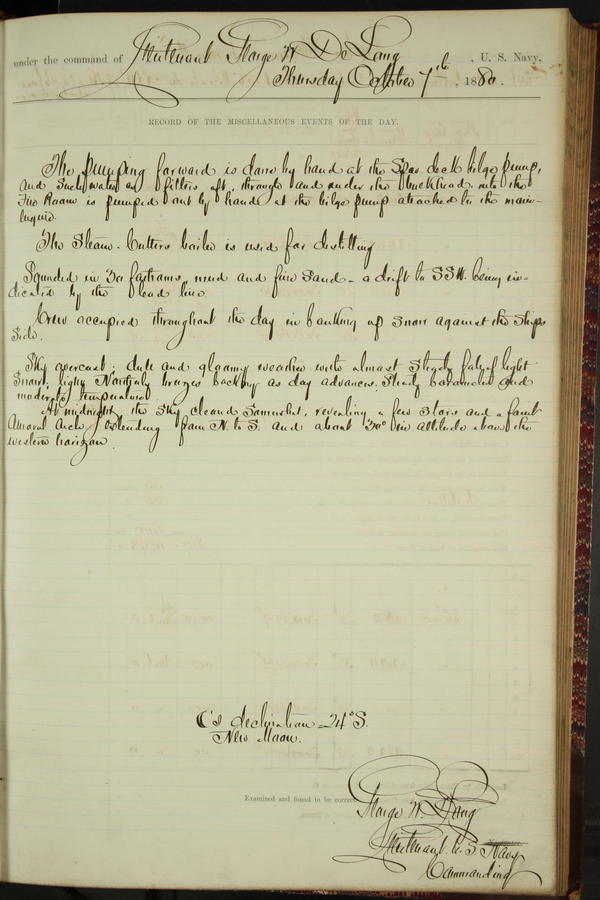 under the command of Lieutenant George W. De Long, U. S. Navy,
Thursday October 7th, 1880.
RECORD OF THE MISCELLANEOUS EVENTS OF THE DAY.
The pumping forward is done by hand at the Spar deck bilge pump,
and such water as filters aft, through and under the bulkhead into the
Fire Room is pumped out by hand at the bilge pump attached to the main
engine.
The Steam-Cutters boiler is used for distilling
Sounded in 30 fathoms, mud and fine sand - a drift to SSW. being in-
dicated by the lead line.
Crew occupied throughout the day in banking up snow against the ships
side.
Sky overcast; dull and gloomy weather with almost steady fall of light
snow; light Northerly breezes backing as day advances. Steady barometer and
moderate temperature.
At midnight the sky cleared somewhat, revealing a few stars and a faint
Auroral Arch extending from N. to S. and about 30° in altitude above the
western horizon.
declination 24° S.
New Moon.
Examined and found to be correct.
George W. De Long
Lieutenant U. S. Navy
Commanding